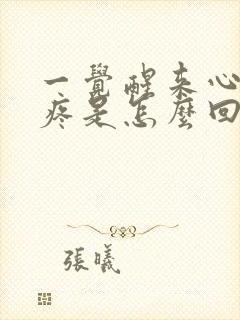 一覺醒来心
疼是怎麼回
張曦